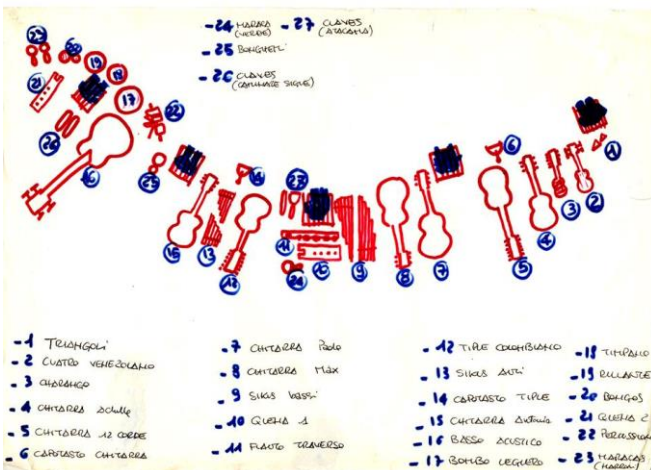 - 24 MARACA - 27 CLAVES
(VERDE) (ATACAMA)
- 25 BONGHETTI
- 26 CLAVES
(CAMINATE SIGUE)
23
20
19
18
21
17
22
26
16
25
15
13
14
12
27
11
10
24
9
8
7
6
5
4
3
2
1
- 1 TRIANGOLI
- 2 CUATRO VENEZOLANO
- 3 CHARANGO
- 4 CHITARRA Achille
- 5 CHITARRA 12 CORDE
- 6 CAPOTASTO CHITARRA
- 7 CHITARRA Paolo
- 8 CHITARRA Max
- 9 SIKUS bassi
- 10 QUENA 1
- 11 FLAUTO TRAVERSO
- 12 TIPLE COLOMBIANO
- 13 SIKUS Alti
- 14 CAPOTASTO TIPLE
- 15 CHITARRA Antonio
- 16 BASSO ACUSTICO
- 17 BOMBO LEGUERO
- 18 TIMPANO
- 19 RULLANTE
- 20 BONGOS
- 21 QUENA 2
- 22
- 23 MARACAS